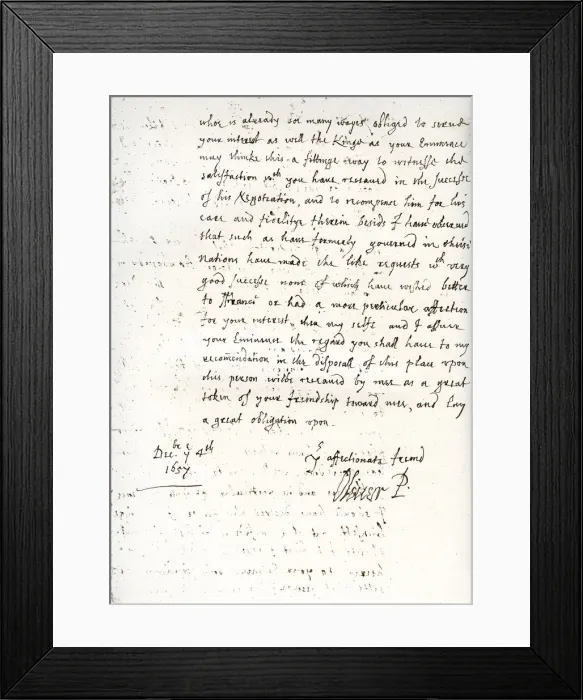 whoe is already soe many wayes obliged to serue
your interest as well the Kings as your Eminence
may thinke this a fittinge way to witnesse the
satisfaction wth you have receaued in the successe
of his Negotiation, and to recompence him for his
care and fidelitye therein besids I haue obserued
that such as haue formerly governed in theise
Nations have made the like requests wth very
good successe none of which have wished better
to France or had a more perticular affection
for your interest, then my selfe and I assure
your Eminence the regard you shall have to my
recomendation in the disposall of this place upon
this person wilbe receaued by mee as a great
token of your friendship toward mee, and lay
a great obligation upon
Decbre ye 4th
1657
Yr affectionate freind
Oliver P.